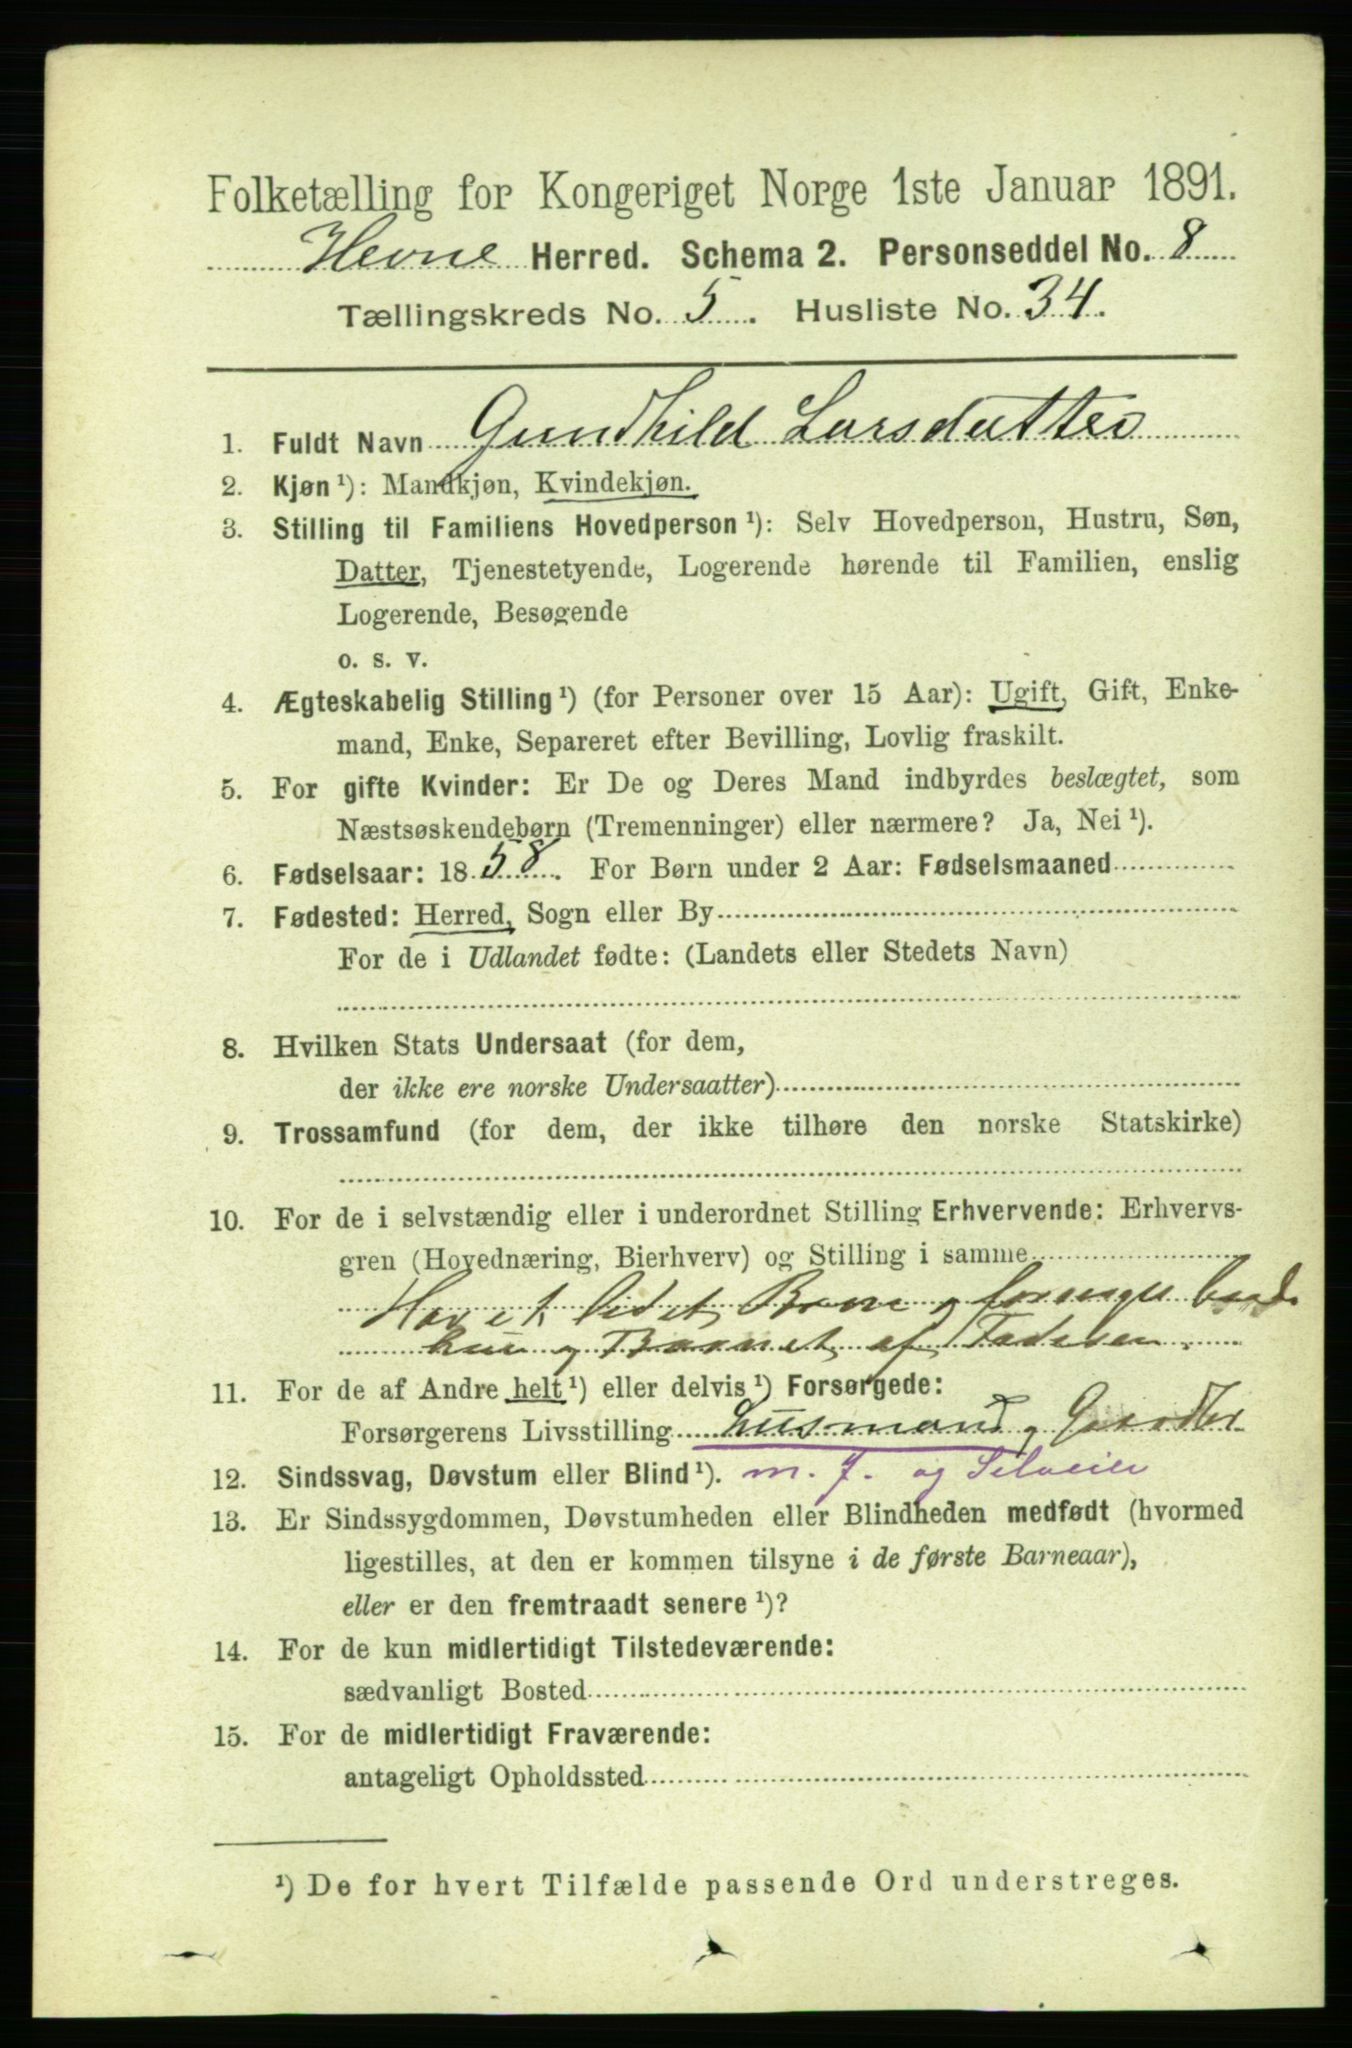 Folketælling for Kongeriget Norge 1ste Januar 1891.
Hevne Herred. Schema 2. Personseddel No. 8
Tællingskreds No. 5. Husliste No. 34.
1. Fuldt Navn Gundhild Larsdatter
2. Kjøn¹): Mandkjøn, Kvindekjøn.
3. Stilling til Familiens Hovedperson¹): Selv Hovedperson, Hustru, Søn,
Datter, Tjenestetyende, Logerende hørende til Familien, enslig
Logerende, Besøgende
o. s. v.
4. Ægteskabelig Stilling¹) (for Personer over 15 Aar): Ugift, Gift, Enke-
mand, Enke, Separeret efter Bevilling, Lovlig fraskilt.
5. For gifte Kvinder: Er De og Deres Mand indbyrdes beslægtet, som
Næstsøskendebørn (Tremenninger) eller nærmere? Ja, Nei¹).
6. Fødselsaar: 1858. For Børn under 2 Aar: Fødselsmaaned
7. Fødested: Herred, Sogn eller By
For de i Udlandet fødte: (Landets eller Stedets Navn)
8. Hvilken Stats Undersaat (for dem,
der ikke ere norske Undersaatter)
9. Trossamfund (for dem, der ikke tilhøre den norske Statskirke)
10. For de i selvstændig eller i underordnet Stilling Erhvervende: Erhvervs-
gren (Hovednæring, Bierhverv) og Stilling i samme
Har et lidet Barn og forsørges baade
hun og Barnet af Faderen.
11. For de af Andre helt¹) eller delvis¹) Forsørgede:
Forsørgerens Livsstilling Husmand og
12. Sindssvag, Døvstum eller Blind¹). m. J. og Selveier
13. Er Sindssygdommen, Døvstumheden eller Blindheden medfødt (hvormed
ligestilles, at den er kommen tilsyne i de første Barneaar),
eller er den fremtraadt senere¹)?
14. For de kun midlertidigt Tilstedeværende:
sædvanligt Bosted
15. For de midlertidigt Fraværende:
antageligt Opholdssted
¹) De for hvert Tilfælde passende Ord understreges.